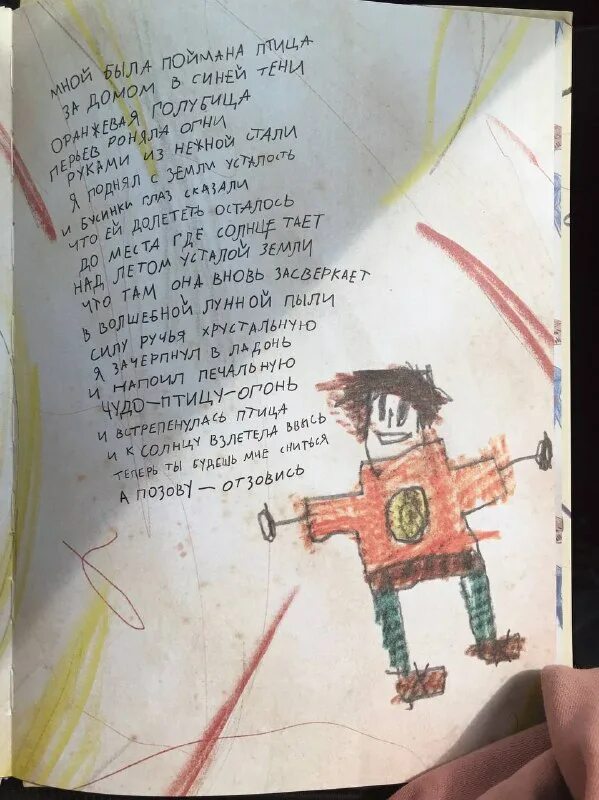 МНОЙ БЫЛА ПОЙМАНА ПТИЦА
ЗА ДОМОМ В СИНЕЙ ТЕНИ
ОРАНЖЕВАЯ ГОЛУБИЦА
ПЕРЬЕВ РОНЯЛА ОГНИ
РУКАМИ ИЗ НЕЖНОЙ СТАЛИ
Я ПОДНЯЛ С ЗЕМЛИ УСТАЛОСТЬ
И БУСИНКИ ГЛАЗ СКАЗАЛИ
ЧТО ЕЙ ДОЛЕТЕТЬ ОСТАЛОСЬ
ДО МЕСТА ГДЕ СОЛНЦЕ ТАЕТ
НАД ЛЕТОМ УСТАЛОЙ ЗЕМЛИ
ЧТО ТАМ ОНА ВНОВЬ ЗАСВЕРКАЕТ
В ВОЛШЕБНОЙ ЛУННОЙ ПЫЛИ
СИЛУ РУЧЬЯ ХРУСТАЛЬНУЮ
Я ЗАЧЕРПНУЛ В ЛАДОНЬ
И НАПОИЛ ПЕЧАЛЬНУЮ
ЧУДО-ПТИЦУ-ОГОНЬ
И ВСТРЕПЕНУЛАСЬ ПТИЦА
И К СОЛНЦУ ВЗЛЕТЕЛА ВВЫСЬ
ТЕПЕРЬ ТЫ БУДЕШЬ МНЕ СНИТЬСЯ
А ПОЗОВУ — ОТЗОВИСЬ